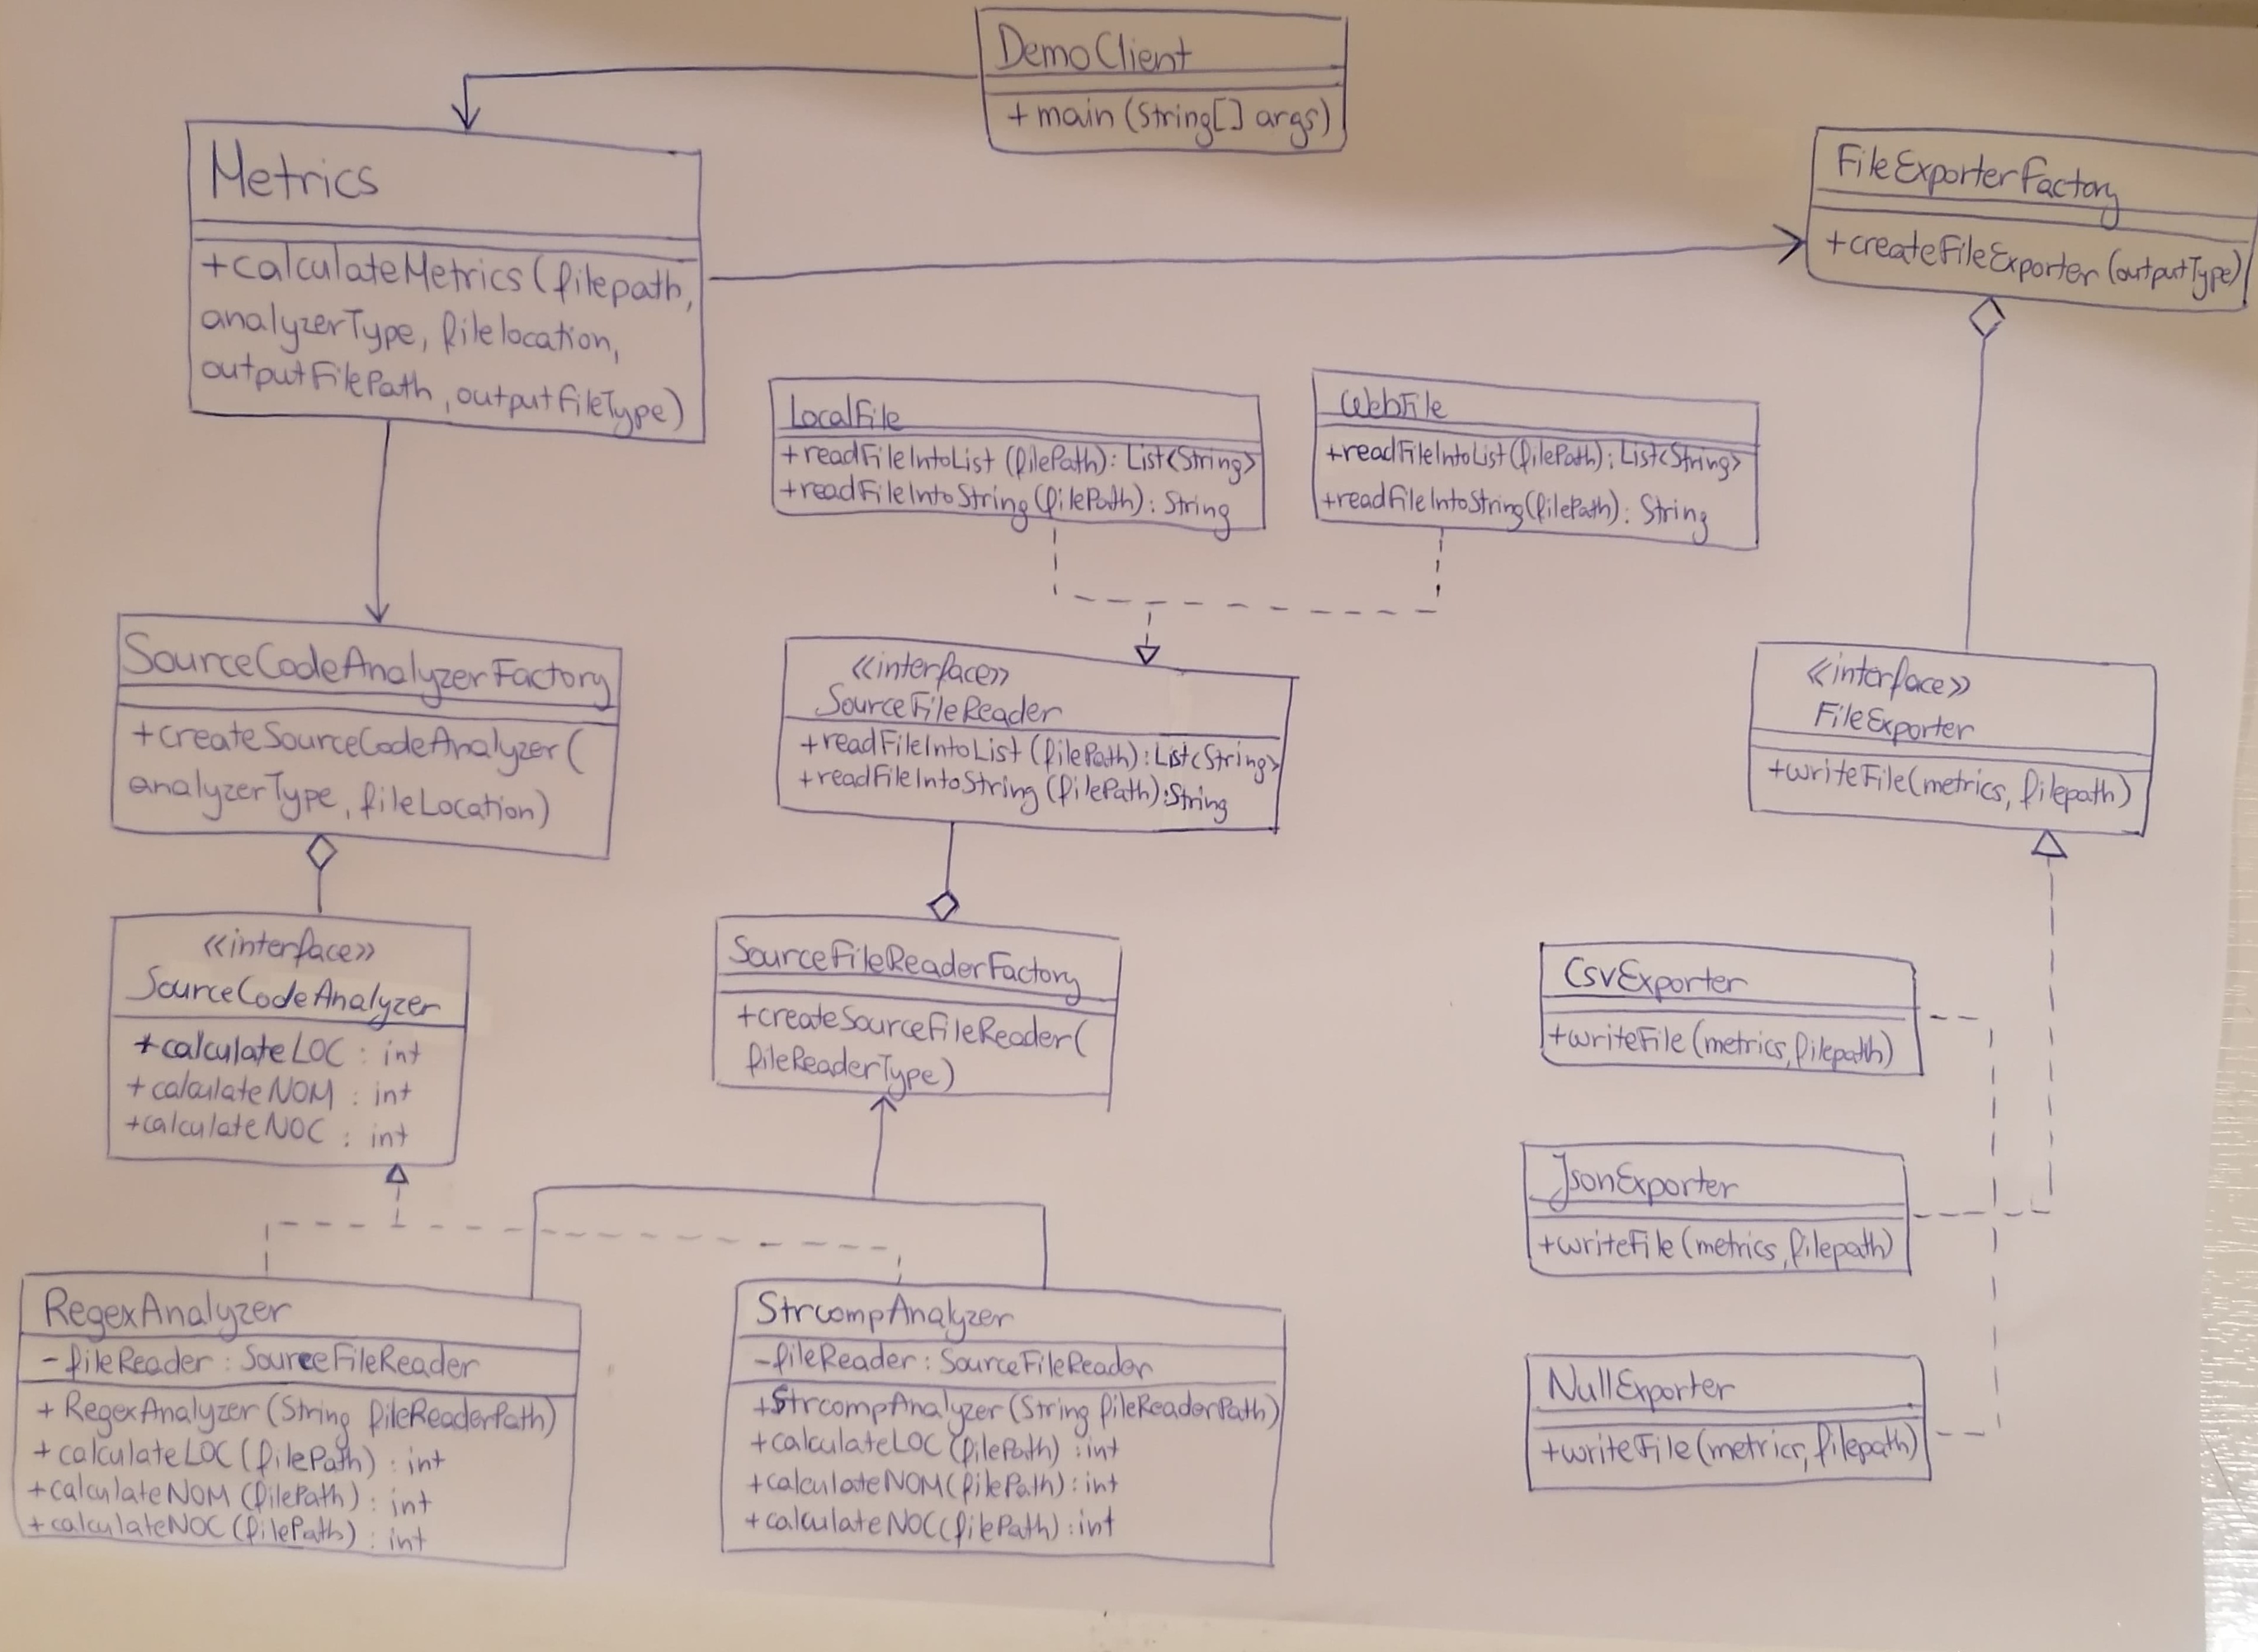 DemoClient
+main(String[] args)
Metrics
+calculateMetrics(filepath,
analyzerType, filelocation,
outputFilePath, outputFileType)
FileExporterFactory
+createFileExporter(outputType)
LocalFile
+readFileIntoList(filePath): List<String>
+readFileIntoString(filePath): String
WebFile
+readFileIntoList(filePath): List<String>
+readFileIntoString(filePath): String
SourceCodeAnalyzerFactory
+createSourceCodeAnalyzer(
analyzerType, fileLocation)
<<interface>>
SourceFileReader
+readFileIntoList(filePath): List<String>
+readFileIntoString(filePath): String
<<interface>>
FileExporter
+writeFile(metrics, filepath)
<<interface>>
SourceCodeAnalyzer
+calculateLOC : int
+calculateNOM : int
+calculateNOC : int
SourceFileReaderFactory
+createSourceFileReader(
fileReaderType)
CsvExporter
+writeFile(metrics,filepath)
JsonExporter
+writeFile(metrics,filepath)
NullExporter
+writeFile(metrics,filepath)
RegexAnalyzer
-fileReader : SourceFileReader
+ RegexAnalyzer(String fileReaderPath)
+ calculateLOC(filePath) : int
+calculateNOM(filePath) : int
+calculateNOC(filePath) : int
StrcompAnalyzer
-fileReader : SourceFileReader
+StrcompAnalyzer(String fileReaderPath)
+calculateLOC(filePath) : int
+calculateNOM(filePath) : int
+calculateNOC(filePath) : int